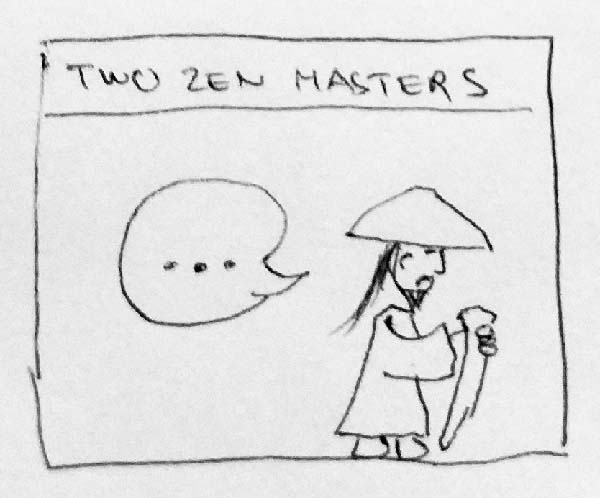 TWO ZEN MASTERS
...